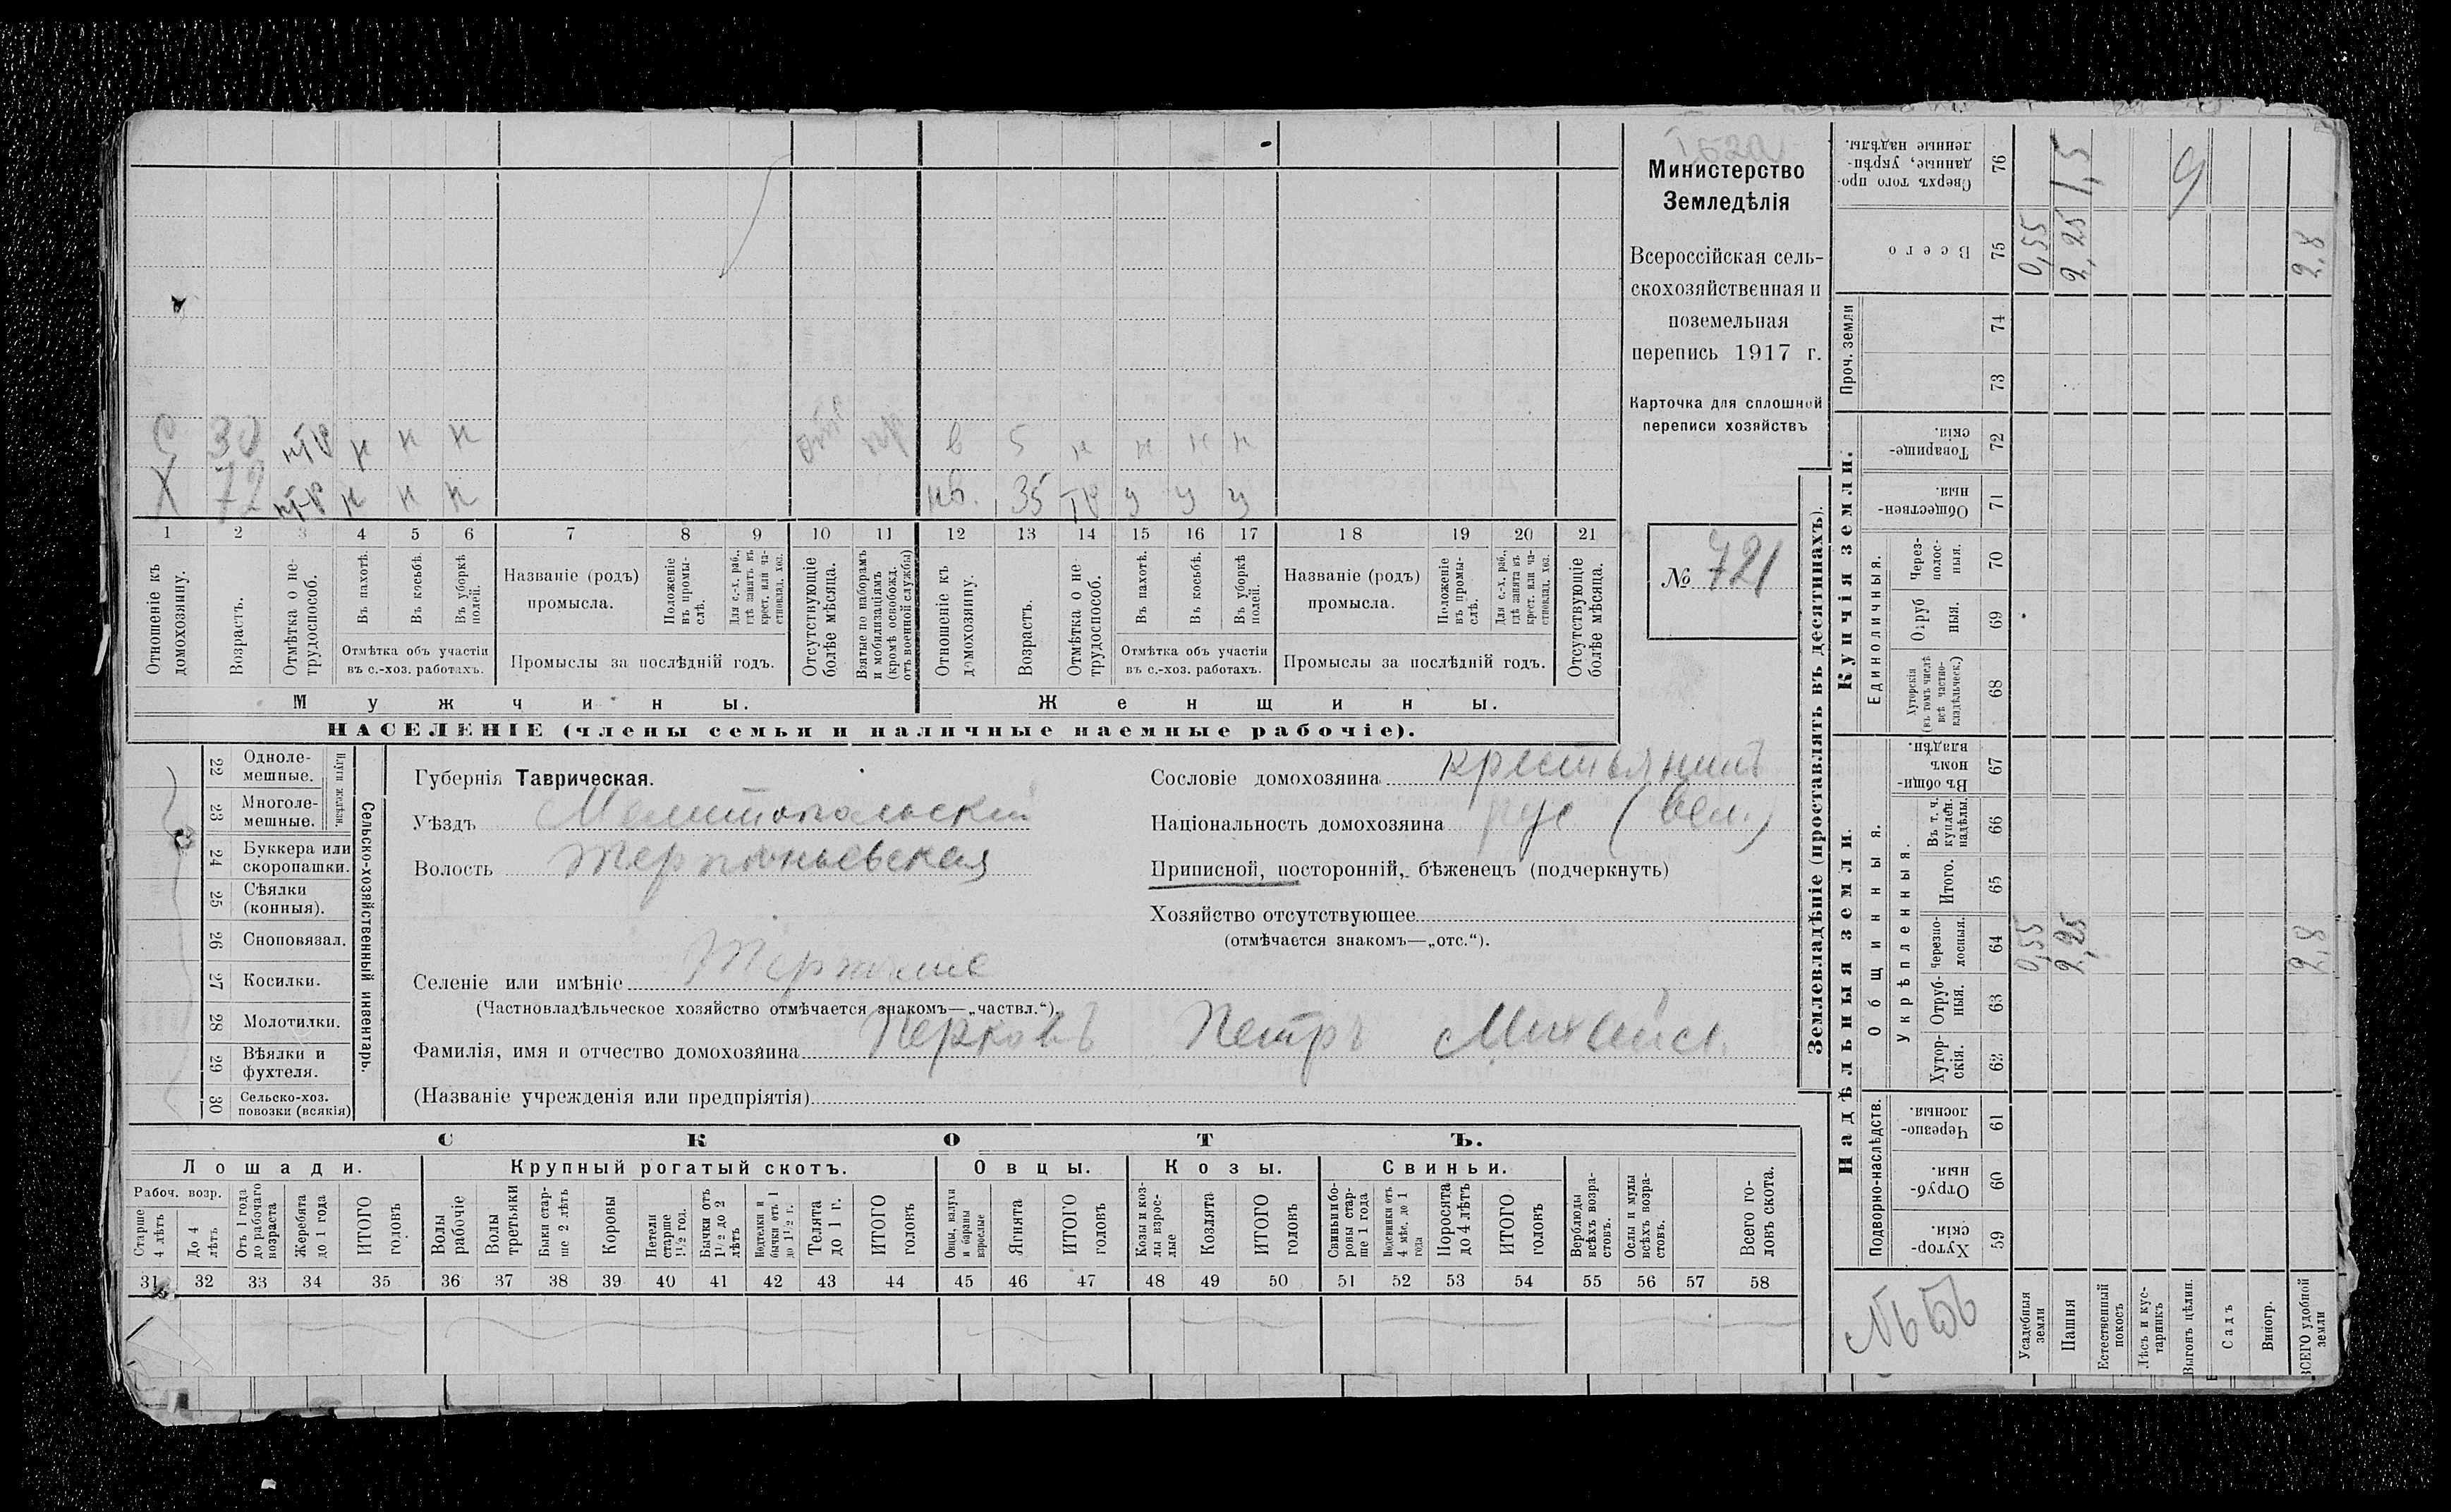 Министерство
Земледѣлія
Всероссійская сель-
скохозяйственная и
поземельная
перепись 1917 г.
Карточка для сплошной
переписи хозяйствъ
№ 721
С 30 нтр н н н отс пр в 5 н н н н
Х 72 нтр н н н нв. 35 тр у у у
1 2 3 4 5 6 7 8 9 10 11 12 13 14 15 16 17 18 19 20 21
Отношеніе къ домохозяину.
Возрастъ.
Отмѣтка о не-трудоспособ.
Въ пахотѣ.
Въ косьбѣ.
Въ уборкѣ полей.
Отмѣтка объ участіи
въ с.-хоз. работахъ.
Названіе (родъ)
промысла.
Положеніе въ промы-слѣ.
Для с.-х. раб., гдѣ занятъ въ крест. или ча-стновлад. хоз.
Промыслы за послѣдній годъ.
Отсутствующіе болѣе мѣсяца.
Взятые по наборамъ и мобилизаціямъ (кромѣ освобожд. отъ военной службы)
Отношеніе къ домохозяину.
Возрастъ.
Отмѣтка о не-трудоспособ.
Въ пахотѣ.
Въ косьбѣ.
Въ уборкѣ полей.
Отмѣтка объ участіи
въ с.-хоз. работахъ.
Названіе (родъ)
промысла.
Положеніе въ промы-слѣ.
Для с.-х. раб., гдѣ занята въ крест. или ча-стновлад. хоз.
Промыслы за послѣдній годъ.
Отсутствующіе болѣе мѣсяца.
Мужчины.
Женщины.
НАСЕЛЕНІЕ (члены семьи и наличные наемные рабочіе).
22 Одноле-мешные.
23 Многоле-мешные.
24 Буккера или скоропашки.
25 Сѣялки (конныя).
26 Сноповязал.
27 Косилки.
28 Молотилки.
29 Вѣялки и фухтеля.
30 Сельско-хоз. повозки (всякія)
Сельско-хозяйственный инвентарь.
Губернія Таврическая.
Уѣздъ Мелитопольскій
Волость Терпѣньевская
Селеніе или имѣніе Терпѣніе
(Частновладѣльческое хозяйство отмѣчается знакомъ—„частвл.“)
Фамилія, имя и отчество домохозяина Перковъ Петръ
(Названіе учрежденія или предпріятія)
Сословіе домохозяина крестьянинъ
Національность домохозяина рус (вел.)
Приписной, посторонній, бѣженецъ (подчеркнуть)
Хозяйство отсутствующее
(отмѣчается знакомъ—„отс.“).
СКОТЪ.
Лошади.
Крупный рогатый скотъ.
Овцы.
Козы.
Свиньи.
Рабоч. возр.
Старше 4 лѣтъ
До 4 лѣтъ
Отъ 1 года до рабочаго возраста
Жеребята до 1 года
ИТОГО головъ
Волы рабочіе
Волы третьяки
Быки стар-ше 2 лѣтъ
Коровы
Нетели старше 1½ год.
Бычки отъ 1½ до 2 лѣтъ
Подтелки и бычки отъ 1 до 1½ г.
Телята до 1 г.
ИТОГО головъ
Овцы, валухи и бараны взрослые
Ягнята
ИТОГО головъ
Козы и коз-лы взрос-лые
Козлята
ИТОГО головъ
Свиньи и бо-ровы стар-ше 1 года
Подсвинки отъ 4 мѣс. до 1 года
Поросята до 4 лѣтъ
ИТОГО головъ
Верблюды всѣхъ возра-стовъ.
Ослы и мулы всѣхъ возра-стовъ.
Всего го-ловъ скота.
31 32 33 34 35 36 37 38 39 40 41 42 43 44 45 46 47 48 49 50 51 52 53 54 55 56 57 58
Землевладѣніе (проставлять въ десятинахъ).
Купчія земли.
Надѣльныя земли.
Сверхъ того про-данные, укрѣп-ленные надѣлы. 76 1,5
Всего 75 0,55 2,25 2,8
Проч. земли 74 73
Товарище-скія. 72
Обществен-ныя. 71
Единоличныя.
Через-полос-ныя. 70
Отруб ныя. 69
Хуторскія (въ томъ числѣ всѣ частно-владѣльческ.) 68
Общинныя.
Въ общи-номъ владѣн. 67
Укрѣпленныя.
Въ т. ч. куплен. надѣлы. 66
Итого. 65
Черезпо-лосныя. 64 0,55 2,25 2,8
Отруб-ныя. 63
Хутор-скія. 62
Подворно-наслѣдств.
Черезпо-лосныя. 61
Отруб-ныя. 60
Хутор-скія. 59
Усадебныя земли
Пашня
Естественный покосъ
Лѣсъ и кус-тарникъ
Выгонъ цѣлин.
Садъ
Виногр.
ВСЕГО удобной земли